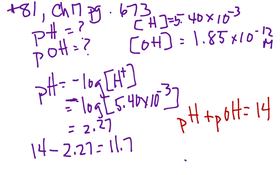 #81, Ch 17 pg. 673
pH = ?
pOH = ?
[H] = 5.40 x 10⁻³
[OH] = 1.85 x 10⁻¹² M
pH = -log[H⁺]
= -log[5.40 x 10⁻³]
= 2.27
14 - 2.27 = 11.7
pH + pOH = 14